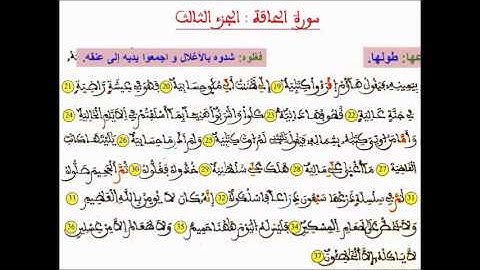 سورة الحاقة : الجزء الثالث
عها: طولها. فغلوه: شدوه بالأغلال و اجمعوا يديه إلى عنقه.
بيمينه فيقول هاؤم اقرءوا كتبيه 19 إني ظننت أني ملق حسابيه 20 فهو في عيشة راضية 21
في جنة عالية 22 قطوفها دانية 23 كلوا واشربوا هنيئا بما أسلفتم في الأيام الخالية 24
وأما من أوتي كتبه بشماله فيقول يليتني لم أوت كتبيه 25 ولم أدر ما حسابيه 26 يليتها كانت
القاضية 27 ما أغنى عني ماليه 28 هلك عني سلطنيه 29 خذوه فغلوه 30 ثم الجحيم صلوه
31 ثم في سلسلة ذرعها سبعون ذراعا فاسلكوه 32 إنه كان لا يومن بالله العظيم 33
ولا يحض على طعام المسكين 34 فليس له اليوم ههنا حميم 35 ولا طعام إلا من غسلين 36
لا ياكله إلا الخطئون 37